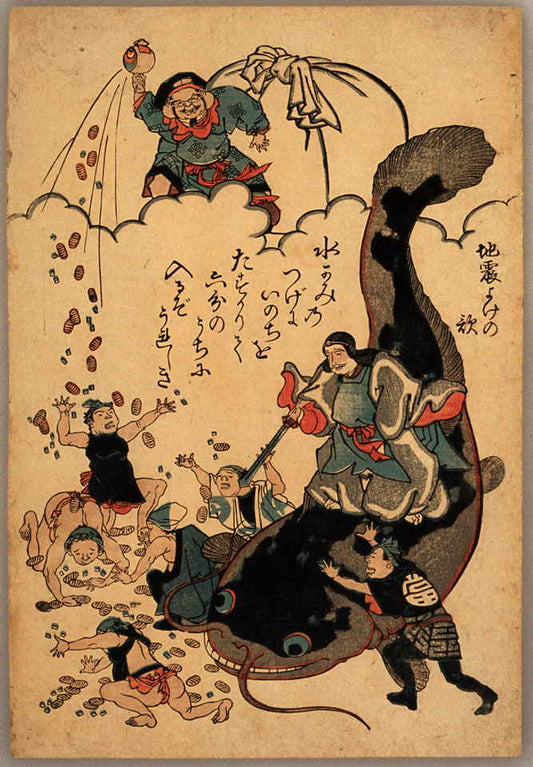 地震よけの
歌
水かみの
つげに
いのちを
たすかりて
六分の
うちに
入るぞ
うれしき
當